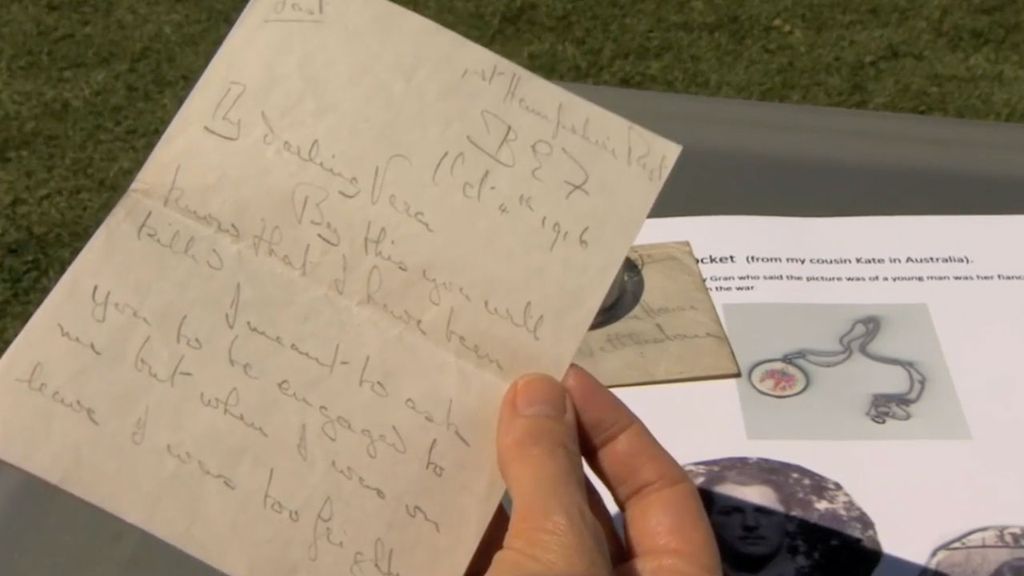 1st Hampshire Regt
B E F
Oct 4th 1916
My darling Vera
By this you will
know that I have been
killed
I meant to ask
you to be engaged to
me but when I was on
leave I was too fright
cket (from my cousin Kate in Australia).
Gran who said the picture was of a young man was her fianc
n the war